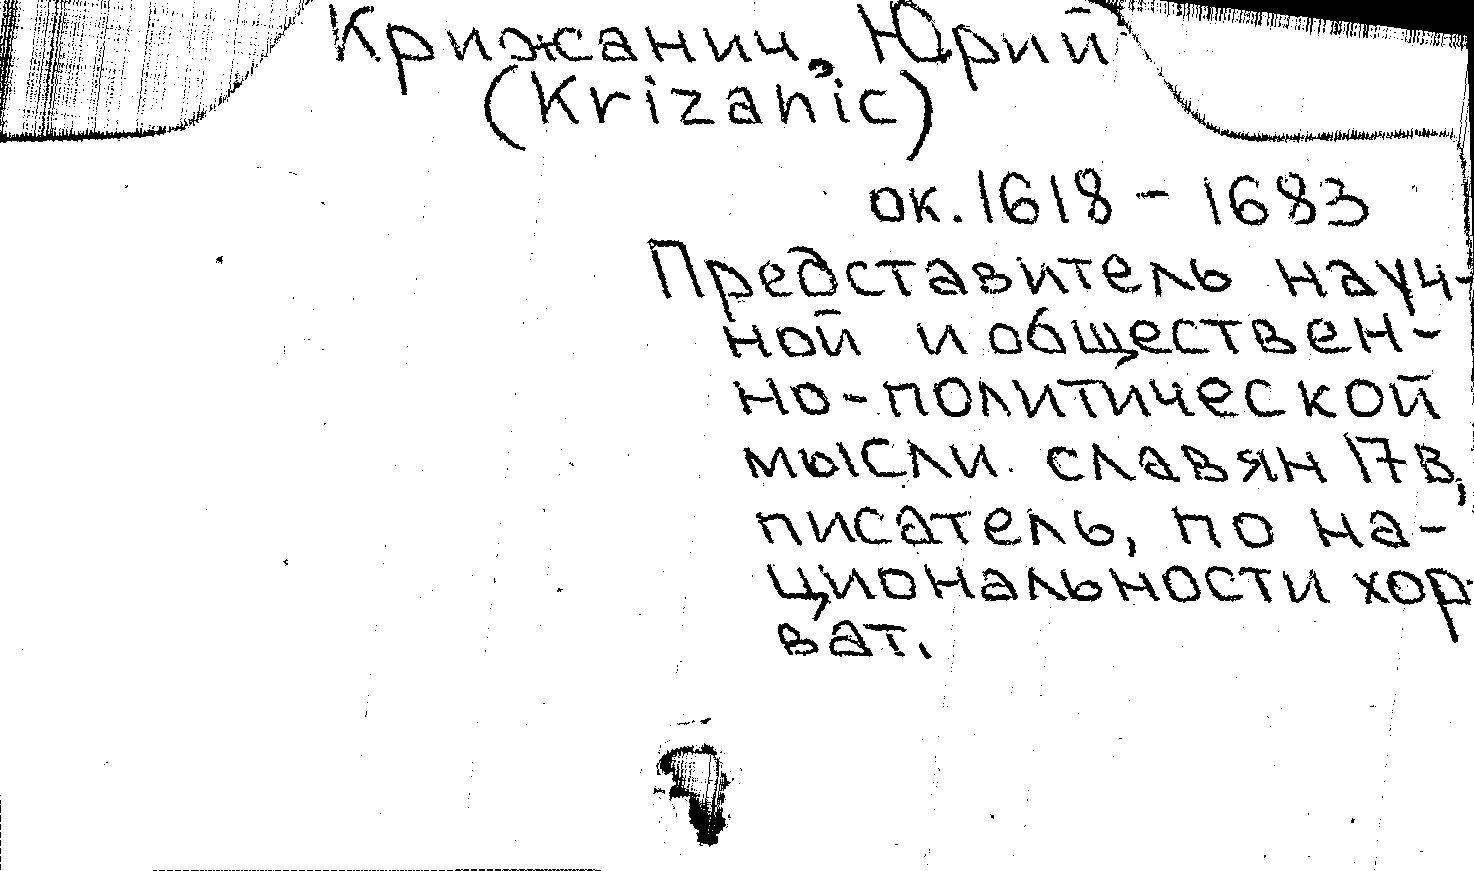 Крижанич, Юрий
(Krizanic)
ок. 1618 - 1683
Представитель науч-
ной и обществен-
но-политической
мысли славян 17 в,
писатель, по на-
циональности хор-
ват.